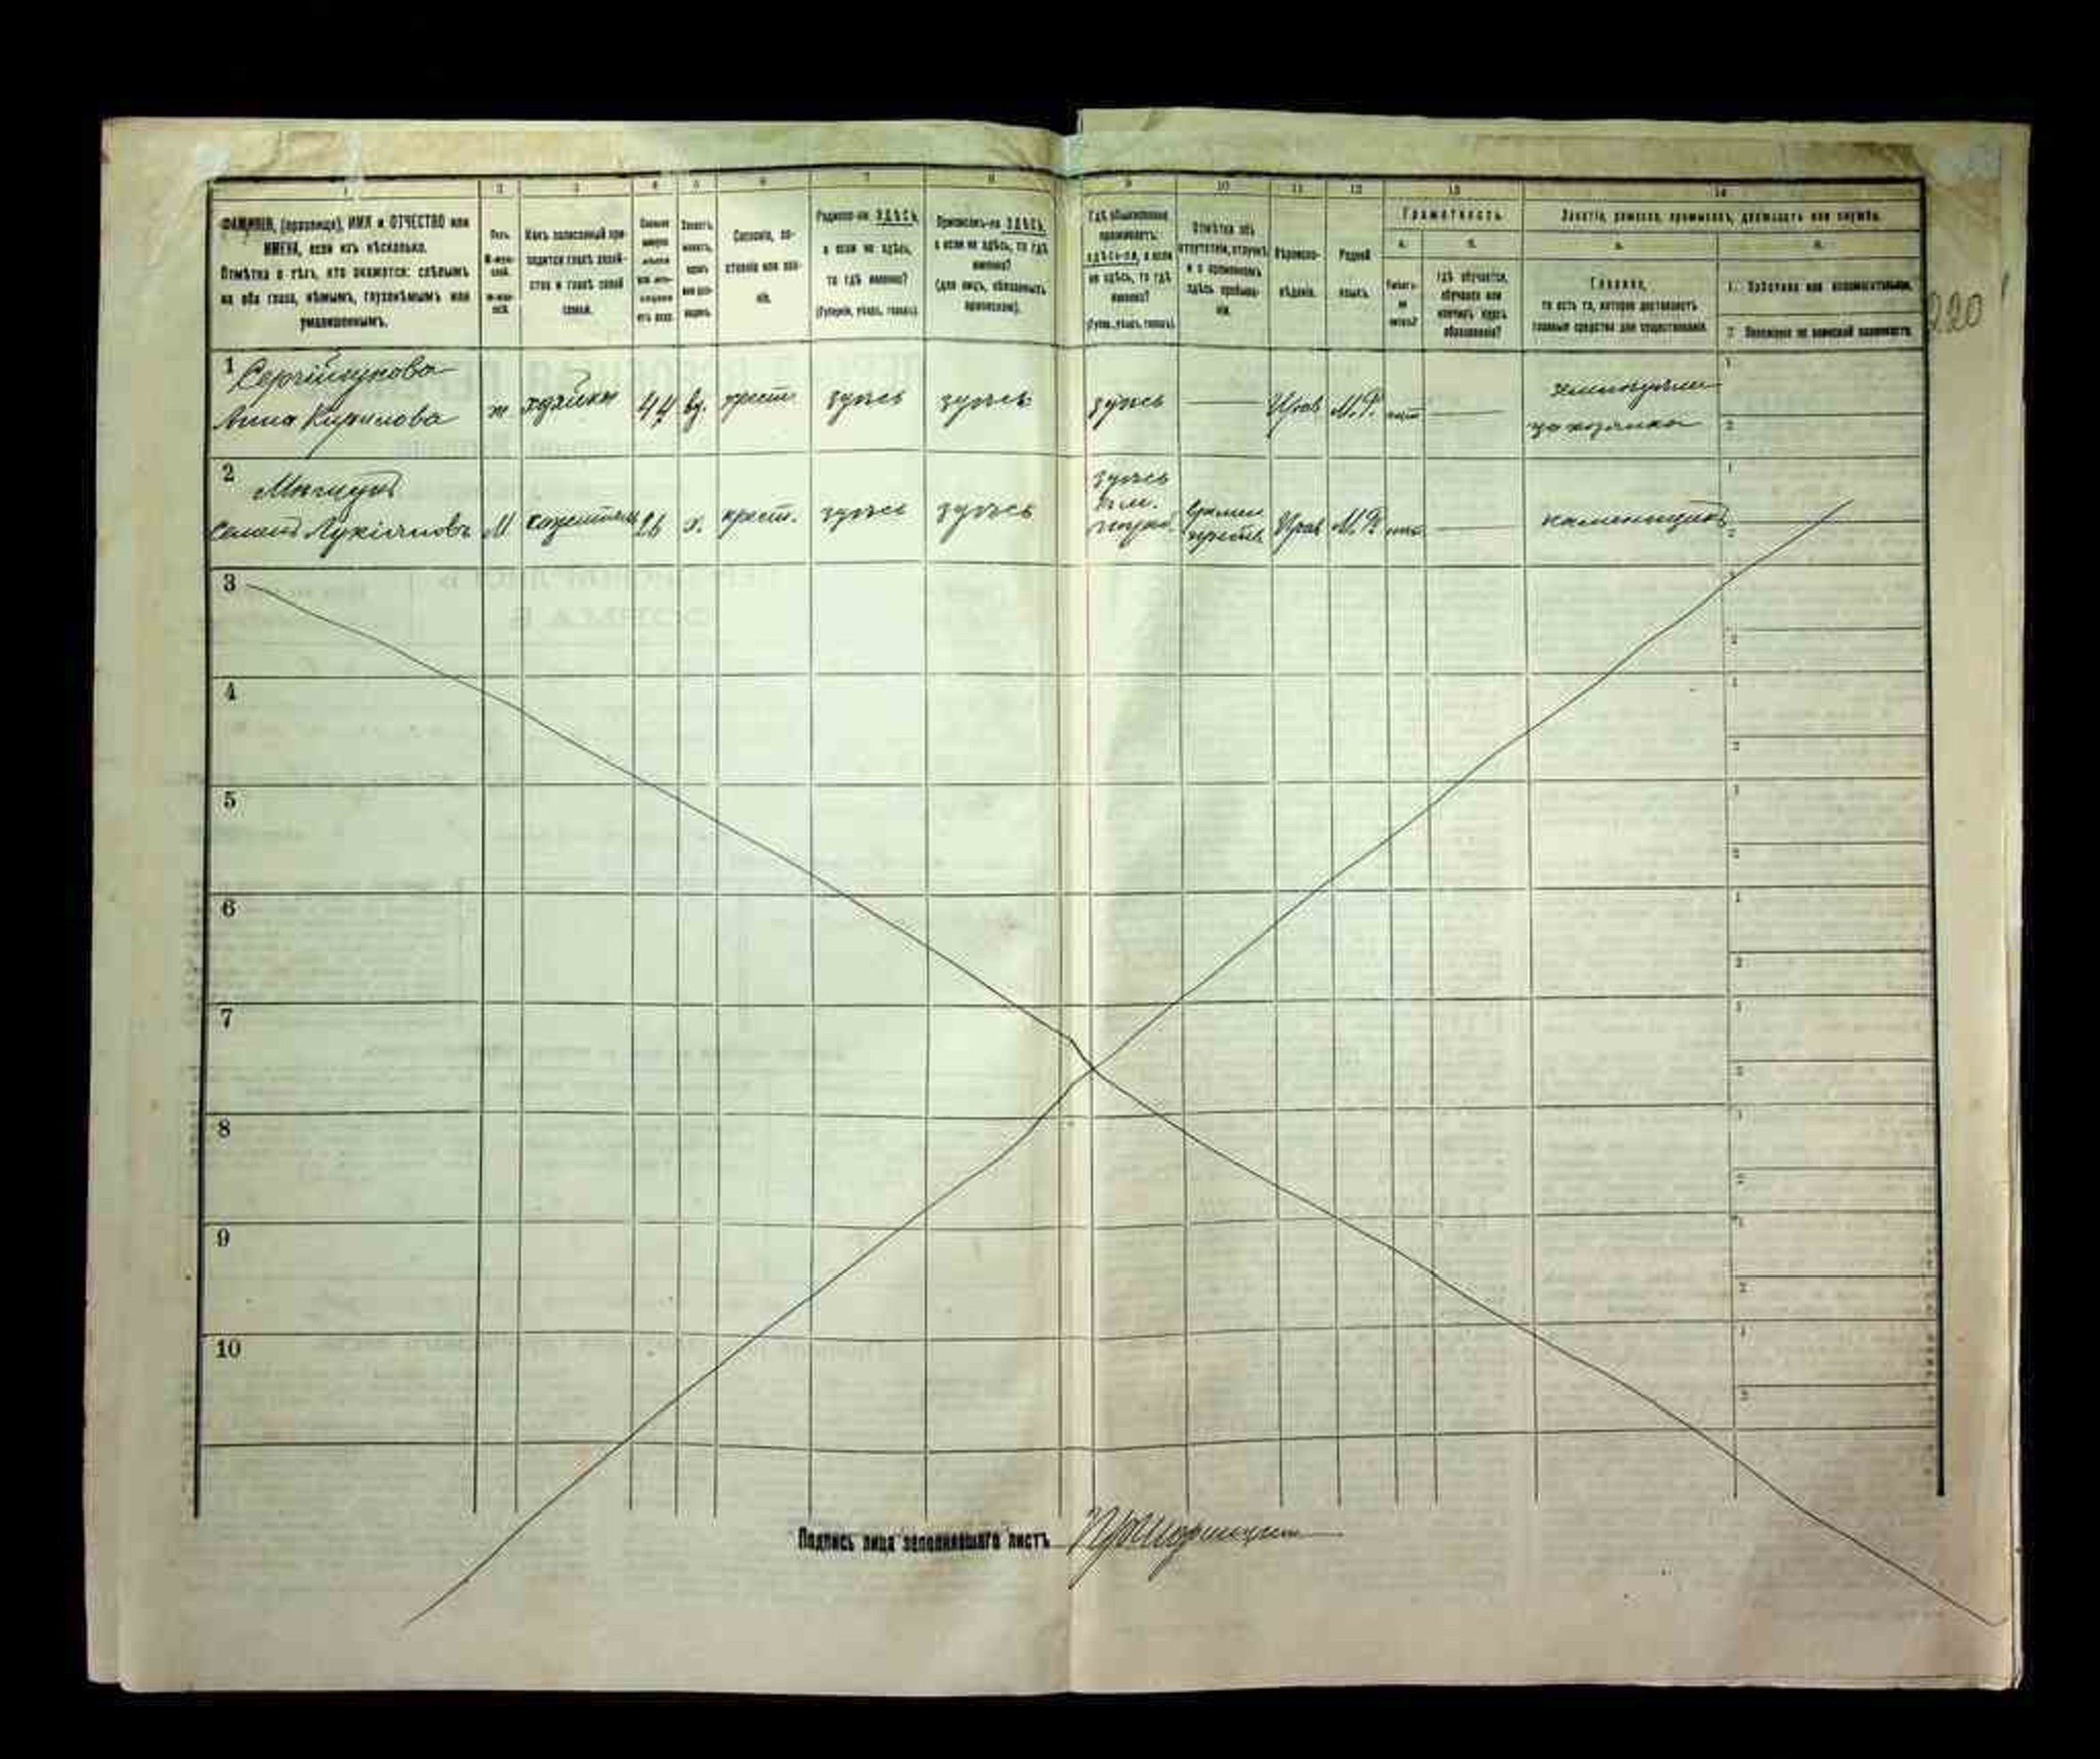 1 2 3 4 5 6 7 8 9 10 11 12 13 14
ФАМИЛІЯ, (прозвище), ИМЯ и ОТЧЕСТВО или
ИМЕНА, если ихъ нѣсколько.
Отмѣтка о тѣхъ, кто окажется: слѣпымъ
на оба глаза, нѣмымъ, глухонѣмымъ или
умалишеннымъ.
Полъ.
М-муж-
ской.
Ж-жен-
скій.
Какъ записанный при-
ходится главѣ хозяй-
ства и главѣ своей
семьи.
Сколько
минуло
лѣтъ
или мѣ-
сяцевъ
отъ роду.
Холостъ,
женатъ,
вдовъ
или раз-
веденъ.
Сословіе, со-
стояніе или зва-
ніе.
Родился-ли ЗДѢСЬ,
а если не здѣсь,
то гдѣ именно?
(Губернія, уѣздъ, городъ).
Приписанъ-ли ЗДѢСЬ,
а если не здѣсь, то гдѣ
именно?
(для лицъ, обязанныхъ
припиской).
Гдѣ обыкновенно
проживаетъ:
здѣсь-ли, а если
не здѣсь, то гдѣ
именно?
(Губер., уѣздъ, городъ).
Отмѣтка объ
отсутствіи, отлучкѣ
и о временномъ
здѣсь пребыва-
ніи.
Вѣроиспо-
вѣданіе.
Родной
языкъ.
Грамотность.
а.
Умѣетъ-
ли
читать?
б.
гдѣ обучается,
обучался или
кончилъ курсъ
образованія?
Занятіе, ремесло, промыселъ, должность или служба.
а.
Главное,
то есть то, которое доставляетъ
главныя средства для существованія.
б.
1. Побочное или вспомогательное.
2. Положеніе по воинской повинности.
220
1
Анна Кирилова
ж хозяйка 44 вд. крест. здѣсь здѣсь здѣсь Прав М.Р. нѣтъ
земледѣліе
хозяйка
1
2
2
Лукіяновъ
М 26 х. крест. здѣсь здѣсь
здѣсь
Прав М.Р. нѣтъ
каменщикъ
1
2
3
1
2
4
1
2
5
1
2
6
1
2
7
1
2
8
1
2
9
1
2
10
1
2
Подпись лица заполнявшаго листъ